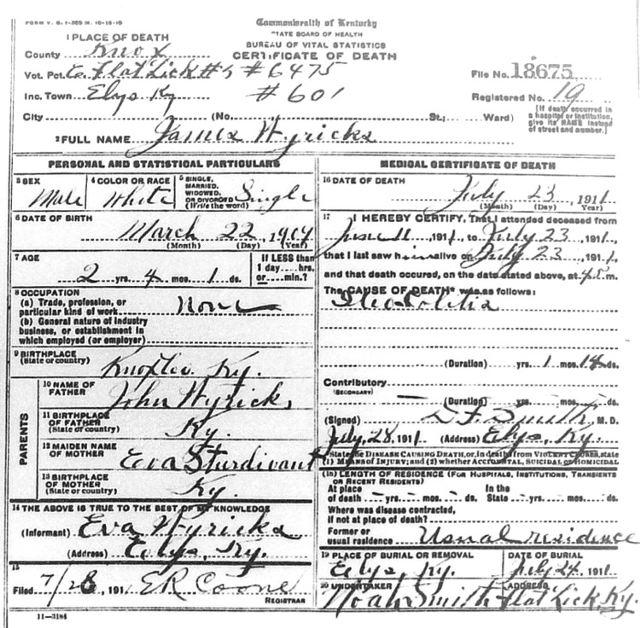 FORM V. S. 1-365 M. 10-15-10
Commonwealth of Kentucky
STATE BOARD OF HEALTH
BUREAU OF VITAL STATISTICS
CERTIFICATE OF DEATH
1 PLACE OF DEATH
County Knox
Vot. Pct. E. Flat Lick #5 #6475
File No. 18675
Inc. Town Elys Ky #601
Registered No. 19
City (No. St.; Ward)
[If death occurred in a hospital or institution, give its NAME instead of street and number.]
2 FULL NAME James Wyricks
PERSONAL AND STATISTICAL PARTICULARS
3 SEX Male
4 COLOR OR RACE White
5 SINGLE, MARRIED, WIDOWED, OR DIVORCED (Write the word) Single
6 DATE OF BIRTH
March 22, 1909
(Month) (Day) (Year)
7 AGE
2 yrs. 4 mos. 1 ds.
If LESS than 1 day....hrs. or....min.?
8 OCCUPATION
(a) Trade, profession, or particular kind of work None
(b) General nature of industry business, or establishment in which employed (or employer)
9 BIRTHPLACE
(State or country) Knox Co. Ky.
PARENTS
10 NAME OF FATHER John Wyricks
11 BIRTHPLACE OF FATHER (State or country) Ky
12 MAIDEN NAME OF MOTHER Eva Sturdivant
13 BIRTHPLACE OF MOTHER (State or country) Ky.
14 THE ABOVE IS TRUE TO THE BEST OF MY KNOWLEDGE
(Informant) Eva Wyricks
(Address) Elys, Ky.
15
Filed 7/28 191 E R Coone
REGISTRAR
11-3184
MEDICAL CERTIFICATE OF DEATH
16 DATE OF DEATH
July 23, 1911
(Month) (Day) (Year)
17 I HEREBY CERTIFY, That I attended deceased from
June 11, 1911, to July 23, 1911,
that I last saw him alive on July 23, 1911,
and that death occured, on the date stated above, at 4 m.
The CAUSE OF DEATH* was as follows:
Ileo Colitis
(Duration) yrs. 1 mos. 12 ds.
Contributory
(SECONDARY)
(Duration) yrs. mos. ds.
(Signed) D. F. Smith, M. D.
July 28, 1911 (Address) Elys, Ky.
*State the DISEASE CAUSING DEATH, or, in deaths from VIOLENT CAUSES, state (1) MEANS OF INJURY; and (2) whether ACCIDENTAL, SUICIDAL or HOMICIDAL
18 LENGTH OF RESIDENCE (FOR HOSPITALS, INSTITUTIONS, TRANSIENTS OR RECENT RESIDENTS)
At place of death yrs. mos. ds. In the State yrs. mos. ds.
Where was disease contracted, if not at place of death?
Former or usual residence Usual residence
19 PLACE OF BURIAL OR REMOVAL
Elys, Ky.
DATE OF BURIAL
July 24, 1911
20 UNDERTAKER
Noah Smith
ADDRESS
Flat Lick, Ky.